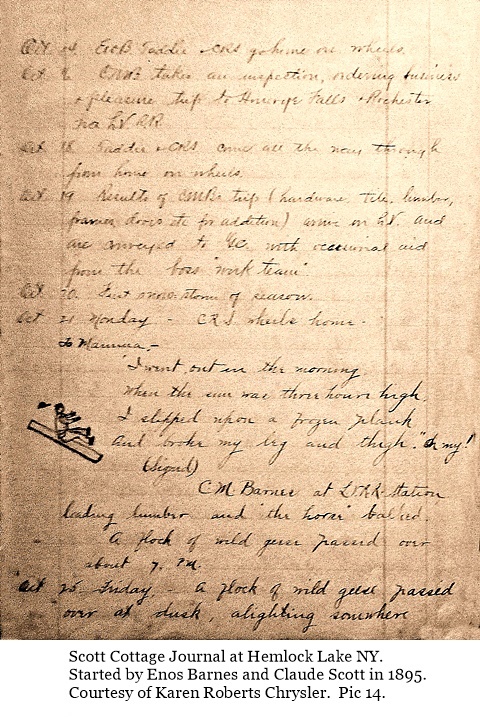 Oct 14. ECB Taddie & CRS go home on wheels.
Oct CMB takes an inspection, ordering business
& pleasure trip to Honeoye Falls & Rochester
via L.V.R.R.
Oct 18 Taddie & CRS come all the way through
from home on wheels.
Oct 19 Results of CMBs trip (hardware, tile, lumber,
frames, doors etc for addition) arrive on L.V. and
are conveyed to with occasional aid
from the boss "work team"
Oct. 20. First snow storm of season.
Oct 21 Monday - C.R.S. wheels home.
to
"I went out in the morning
When the sun was three hours high,
I slipped upon a frozen plank
And broke my leg and thigh." Oh my!
(Signed)
C M Barnes at L.V.R.R. Station
loading lumber and "the horse" balked.
A flock of wild geese passed over
about 7. P.M.
Oct 25 Friday - A flock of wild geese passed
over at dusk alighting somewhere
Scott Cottage Journal at Hemlock Lake NY.
Started by Enos Barnes and Claude Scott in 1895.
Courtesy of Karen Roberts Chrysler. Pic 14.